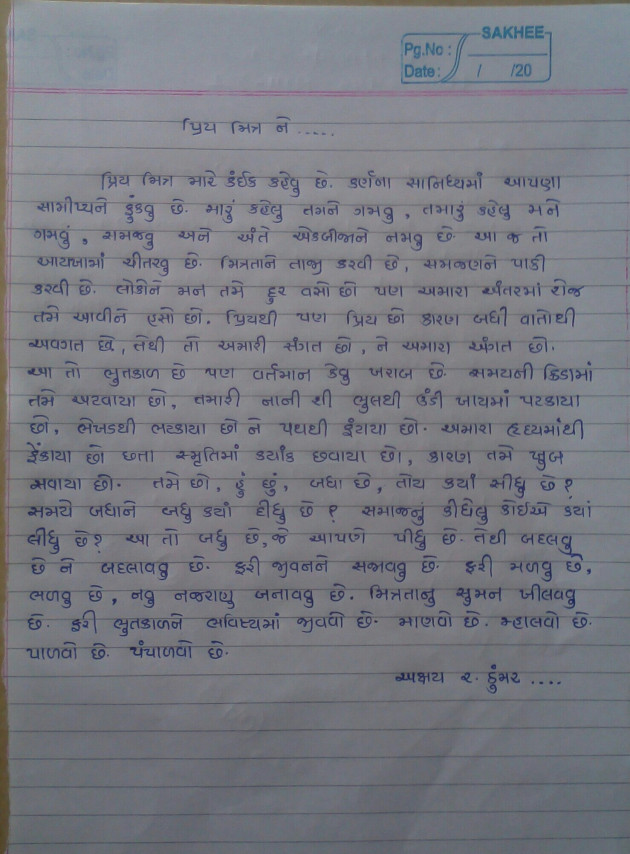 SAKHEE
Pg.No :
Date : / /20
પ્રિય મિત્ર ને .....
પ્રિય મિત્ર મારે કંઈક કહેવુ છે. કર્ણના સાનિધ્યમાં આપણા
સામીપ્યને ફુંકવુ છે. મારું કહેલુ તમને ગમવુ, તમારું કહેલુ મને
ગમવું, સમજવુ અને અંતે એકબીજાને નમવુ છે. આ જ તો
આયખામાં ચીતરવુ છે. મિત્રતાને તાજી કરવી છે, સમજણને પાકી
કરવી છે. લોકોને મન તમે દુર વસો છો પણ અમારા અંતરમાં રોજ
તમે આવીને હસો છો. પ્રિયથી પણ પ્રિય છો કારણ બધી વાતોથી
અવગત છો, તેથી તો અમારી સંગત છો, ને અમારા અંગત છો.
આ તો ભુતકાળ છે પણ વર્તમાન કેવુ ખરાબ છે. સમયની ક્રિડામાં
તમે અટવાયા છો, તમારી નાની શી ભુલથી ઉંડી ખાયમાં પટકાયા
છો, ભેખડથી ભટકાયા છો ને પથથી ફંગાયા છો. અમારા હૃદયમાંથી
ફેંકાયા છો છતા સ્મૃતિમાં કયાંક છવાયા છો, કારણ તમે ખુબ
સવાયા છો. તમે છો, હું છું, બધા છે, તોય કયાં સીધુ છે?
સમયે બધાને બધુ કયાં દીધુ છે? સમાજનું કીધેલુ કોઈએ કયાં
લીધુ છે? આ તો બધુ છે, જે આપણે પીધુ છે. તેથી બદલવુ
છે ને બદલાવવુ છે. ફરી જીવનને સજાવવુ છે. ફરી મળવુ છે,
ભળવુ છે, નવુ નજરાણુ બનાવવુ છે. મિત્રતાનુ સુમન ખીલવવુ
છે. ફરી ભુતકાળને ભવિષ્યમાં જીવવો છે. માણવો છે. મ્હાલવો છે.
પાળવો છે. પંપાળવો છે.
અક્ષય ર. ડુંમર ....